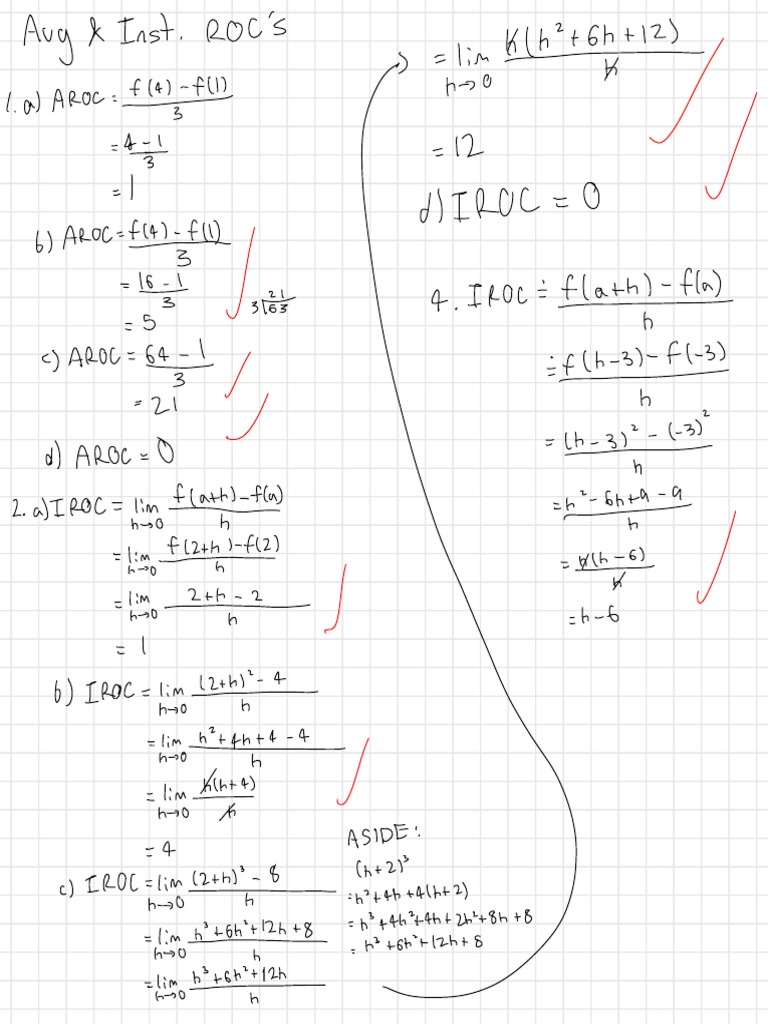 Avg & Inst. ROC's
1. a) AROC = (f(4) - f(1))/3
= (4 - 1)/3
= 1
b) AROC = (f(4) - f(1))/3
= (16 - 1)/3
= 5
21
3√63
c) AROC = (64 - 1)/3
= 21
d) AROC = 0
2. a) IROC = lim h→0 (f(a+h) - f(a))/h
= lim h→0 (f(2+h) - f(2))/h
= lim h→0 (2+h - 2)/h
= 1
b) IROC = lim h→0 ((2+h)² - 4)/h
= lim h→0 (h² + 4h + 4 - 4)/h
= lim h→0 (h(h+4))/h
= 4
c) IROC = lim h→0 ((2+h)³ - 8)/h
= lim h→0 (h³ + 6h² + 12h + 8)/h
= lim h→0 (h³ + 6h² + 12h)/h
ASIDE:
(h+2)³
= h³ + 4h + 4(h+2)
= h³ + 4h² + 4h + 2h² + 8h + 8
= h³ + 6h² + 12h + 8
= lim h→0 (h(h² + 6h + 12))/h
= 12
d) IROC = 0
4. IROC ≐ (f(a+h) - f(a))/h
≐ (f(h-3) - f(-3))/h
= ((h-3)² - (-3)²)/h
= (h² - 6h + 9 - 9)/h
= (h(h-6))/h
= h - 6